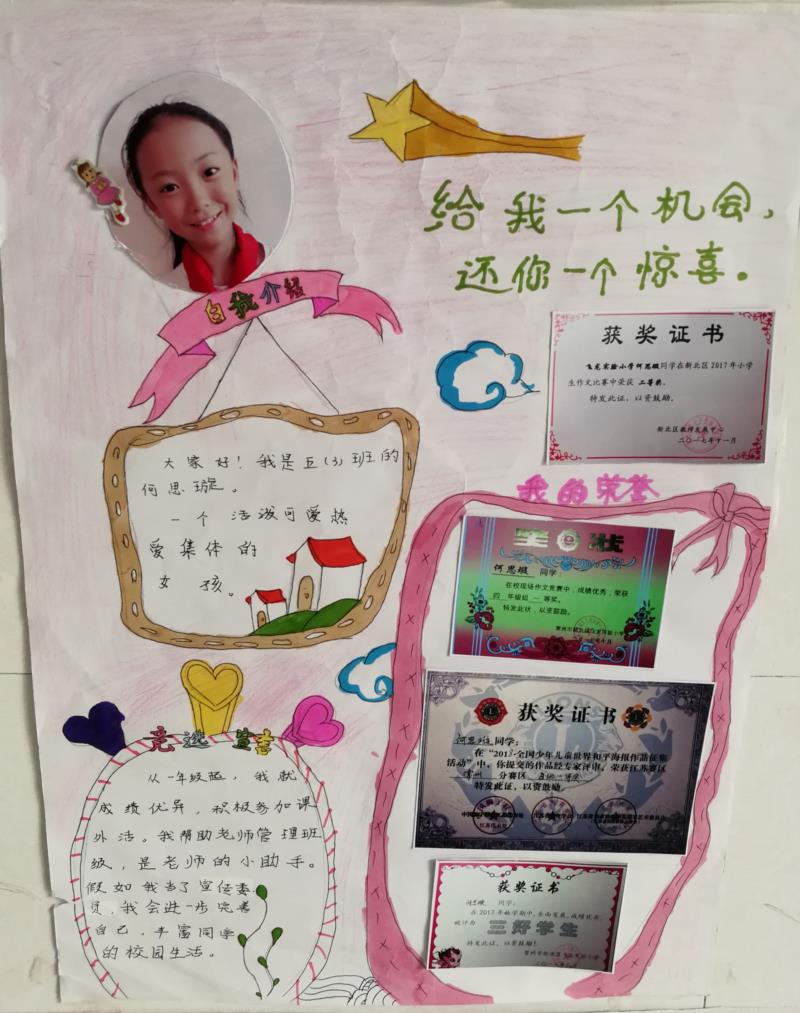 给我一个机会,
还你一个惊喜。
自我介绍
大家好!我是五(3)班的
何思璇。
一个活泼可爱热
爱集体的
女孩。
获奖证书
飞龙实验小学何思璇同学在新北区2017年小学
生作文比赛中荣获 二等奖。
特发此证,以资鼓励。
新北区教师发展中心
二〇一七年十一月
我的荣誉
奖状
何思璇 同学:
在校现场作文竞赛中,成绩优秀,荣获
四 年级组 一 等奖。
特发此状,以资鼓励。
获奖证书
何思璇 同学:
在“2018·全国少年儿童世界和平海报作品征集
活动”中,你提交的作品经专家评审,荣获江苏赛区
常州 分赛区
特发此证,以资鼓励。
获奖证书
同学:
在2017年秋学期中,全面发展,成绩优良,
被评为 三好学生
特发此证,以资鼓励!
竞选宣言
从一年级起,我就
成绩优异,积极参加课
外活。我帮助老师管理班
级,是老师的小助手。
假如我当了宣传委
员,我会进一步完善
自己,丰富同学
的校园生活。